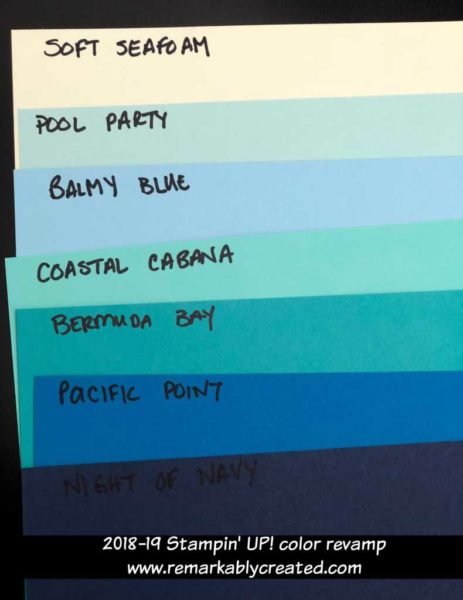 SOFT SEAFOAM
POOL PARTY
BALMY BLUE
COASTAL CABANA
BERMUDA BAY
PACIFIC POINT
NIGHT OF NAVY
2018-19 Stampin' UP! color revamp
www.remarkablycreated.com